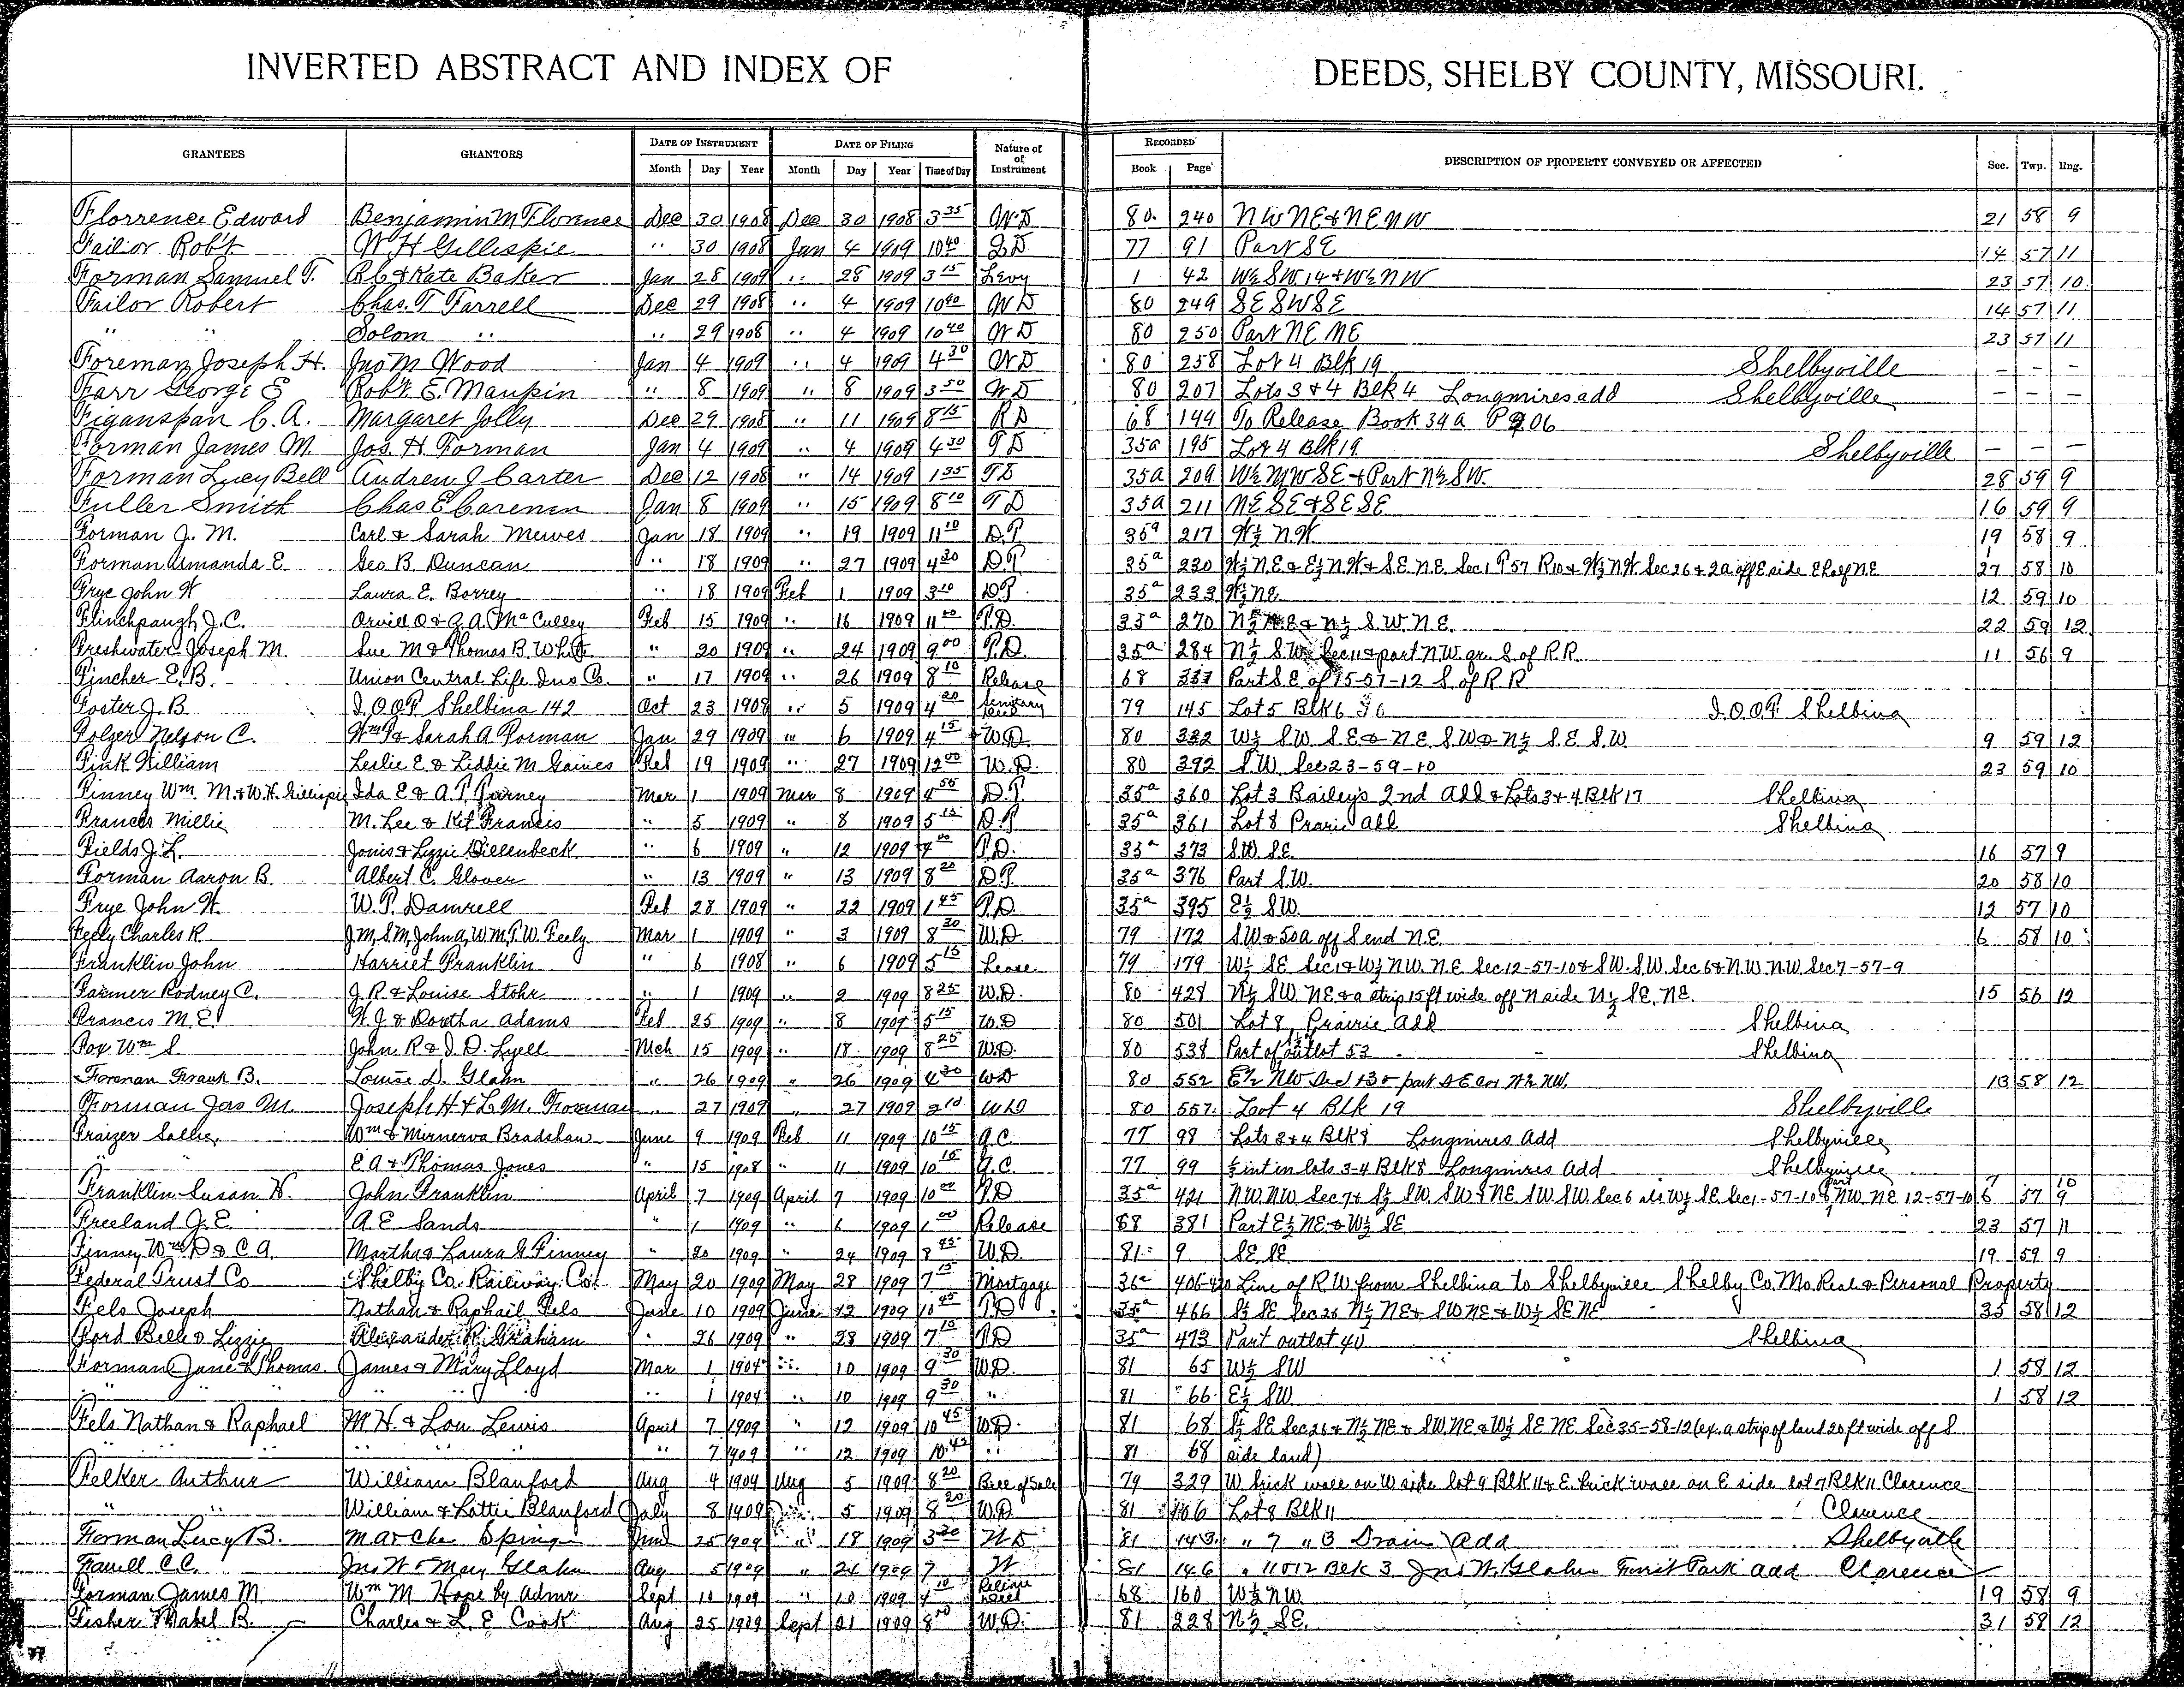 INVERTED ABSTRACT AND INDEX OF DEEDS, SHELBY COUNTY, MISSOURI.
GRANTEES GRANTORS DATE OF INSTRUMENT DATE OF FILING Nature of of Instrument RECORDED DESCRIPTION OF PROPERTY CONVEYED OR AFFECTED Sec. Twp. Rng.
Month Day Year Month Day Year Time of Day Book Page
Florrence Edward Benjamin M Florence Dec 30 1908 Dec 30 1908 3 35 W.D 80. 240 NW NE & NE NW 21 58 9
Failor Rob't W H Gillispie " 30 1908 Jan 4 1909 10 40 Q D 77 91 Part SE 14 57 11
Forman Samuel T. R C & Kate Baker Jan 28 1909 " 28 1909 3 15 Levy 1 42 W½ SW 14 & W½ NW 23 57 10
Failor Robert Chas. T Farrell Dec 29 1908 " 4 1909 10 40 W D 80 249 SE SW SE 14 57 11
" " Solom " " 29 1908 " 4 1909 10 40 W D 80 250 Part NE NE 23 57 11
Foreman Joseph H. Jno M Wood Jan 4 1909 " 4 1909 4 30 W D 80 258 Lot 4 Blk 19 Shelbyville - - -
Farr George E Rob't. E. Maupin " 8 1909 " 8 1909 3 50 W D 80 207 Lots 3 & 4 Blk 4 Longmires add Shelbyville - - -
Figanspan C. A. Margaret Jolly Dec 29 1908 " 11 1909 8 15 R D 68 144 To Release Book 34a P 206
Forman James M. Jos. H Forman Jan 4 1909 " 4 1909 4 30 T D 35a 195 Lot 4 Blk 19. Shelbyville - - -
Forman Lucy Bell Andrew J Carter Dec 12 1908 " 14 1909 1 35 T D 35a 209 W½ NW SE & Part N½ SW. 28 59 9
Fuller Smith Chas E Carenen Jan 8 1909 " 15 1909 8 10 T D 35a 211 NE SE & SE SE 16 59 9
Forman J. M. Carl & Sarah Mewes Jan 18 1909 " 19 1909 11 10 D.T. 35a 217 W½ N.W 19 58 9
Forman Amanda E. Geo B. Duncan " 18 1909 " 27 1909 4 30 D.T 35a 230 W½ N.E & E½ N.W & S.E. N.E. Sec 1 T 57 R 10 & W½ N.W Sec 26 & 2a off E side E half N.E. 27 58 10
Frye John W Laura E. Borrey " 18 1909 Feb 1 1909 3 10 D.T 35a 233 W½ NE. 12 59 10
Flinchpaugh J. C. Orvid O & G. A. McCulley Feb 15 1909 " 16 1909 11 00 T.D. 35a 270 N½ N.E & N½ S.W. N.E. 22 59 12
Freshwater Joseph M. Sue M & Thomas B. White " 20 1909 " 24 1909 9 00 T.D. 35a 284 N½ S.W. Sec 11 & part N.W. qr. S. of R.R. 11 56 9
Fincher E. B. Union Central Life Ins Co. " 17 1909 " 26 1909 8 10 Release 68 337 Part S.E of 15-57-12 S. of R R
Foster J. B. I.O.O.F. Shelbina 142 Oct 23 1908 " 5 1909 4 20 79 145 Lot 5 Blk 6 I.O.O.F. Shelbina
Folger Nelson C. Wm T & Sarah A Forman Jan 29 1909 " 6 1909 4 15 W.D. 80 332 W½ S.W. S.E & N.E. S.W & N½ S.E. S.W. 9 59 12
Fink William Leslie E. & Liddie M Gaines Feb 19 1909 " 27 1909 12 00 W.D. 80 392 S.W. Sec 23-59-10 23 59 10
Finney Wm. M. & W.H. Gillispie Ida E & A. T. Mar 1 1909 Mar 8 1909 4 55 D.T. 35a 360 Lot 3 Bailey's 2nd Add & Lots 3 & 4 Blk 17 Shelbina
Francis Millie M. Lee & Kit Francis " 5 1909 " 8 1909 5 15 D.T 35a 361 Lot 8 Prarie Add Shelbina
Fields J. L. Jonis & Lizzie Dillenbeck " 6 1909 " 12 1909 4 00 T.D. 35a 373 S.W. S.E. 16 57 9
Forman Aaron B. Albert C. Glover " 13 1909 " 13 1909 8 20 D.T. 35a 376 Part S.W. 20 58 10
Frye John W. W. P. Damrell Feb 28 1909 " 22 1909 1 45 T.D. 35a 395 E½ S.W. 12 57 10
Feely Charles R. J.M, S.M, John A, W.M, T.W. Feely Mar 1 1909 " 3 1909 8 30 W.D. 79 172 S.W & 50a off S end N.E. 6 58 10
Franklin John Harriet Franklin " 6 1908 " 6 1909 5 15 Lease 79 179 W½ SE Sec 1 & W½ N.W. N.E Sec 12-57-10 & S.W. S.W. Sec 6 & N.W. N.W. Sec 7-57-9
Farmer Rodney C. J. R. & Louise Stohr " 1 1909 " 2 1909 8 25 W.D. 80 428 N½ S.W. NE & a strip 15 ft wide off N side N½ SE. NE. 15 56 12
Francis M. E. W. J & Doortha Adams Feb 25 1909 " 8 1909 5 15 W.D 80 501 Lot 8, Prairie Add Shelbina
Fox Wm S. John R & J. D. Lyell Mch 15 1909 " 18 1909 8 25 W.D. 80 538 Part of outlot 53 Shelbina
Forman Frank B. Louise D. Glahn " 26 1909 " 26 1909 4 30 W D 80 552 E½ NW Sec 13 & part S E cor W½ NW. 13 58 12
Forman Jas M. Joseph H & L. M. Foreman " 27 1909 " 27 1909 2 10 W D 80 557 Loot 4 Blk 19 Shelbyville
Fraizer Sallie Wm & Minnerva Bradshaw June 9 1909 Feb 11 1909 10 15 Q.C. 77 98 Lots 3 & 4 Blk 8 Longmires Add Shelbyville
" E. A & Thomas Jones " 15 1908 " 11 1909 10 15 Q.C. 77 99 ½ int in lots 3-4 Blk 8 Longmires Add Shelbyville
Franklin Susan H. John Franklin April 7 1909 April 7 1909 10 00 T.D 35a 421 N.W. N.W Sec 7 & S½ S.W. S.W & NE S.W S.W. Sec 6 als W½ SE. Sec 1-57-10 & part N.W. NE 12-57-10 7 6 57 10 9
Freeland J. E. A. E. Sands " 1 1909 " 6 1909 1 00 Release 68 381 Part E½ NE & W½ SE 23 57 11
Finney Wm D & C A. Martha & Laura G Finney " 20 1909 " 24 1909 8 45 W.D. 81 9 SE. SE. 19 59 9
Federal Trust Co Shelby Co. Railway Co. May 20 1909 May 28 1909 7 15 Mortgage 36a 406-420 Line of R.W. from Shelbina to Shelbyville Shelby Co. Mo. Real & Personal Property
Fels Joseph Nathan & Raphail Fels June 10 1909 June 12 1909 10 45 T.D 35a 466 S½ SE Sec 26 N½ NE & SW NE & W½ SE NE 35 58 12
Ford Belle & Lizzie Alexander R. Graham " 26 1909 " 28 1909 7 15 T.D 35a 473 Part outlot 40 Shelbina
Forman Jane & Thomas. James & Mary Lloyd Mar 1 1904 " 10 1909 9 30 W.D. 81 65 W½ SW 1 58 12
" " " 1 1904 " 10 1909 9 30 " 81 66 E½ SW 1 58 12
Fels Nathan & Raphael M. H. & Lou Lewis April 7 1909 " 12 1909 10 45 W.D. 81 68 S½ SE Sec 26 & N½ NE & SW NE & W½ SE NE Sec 35-58-12 (ex. a strip of land 20 ft wide off S.
" " " " 7 1909 " 12 1909 10 45 " 81 68 side land)
Felker Arthur William Blanford Aug 4 1909 Aug 5 1909 8 20 Bill of Sale 79 329 W brick wall on W side lot 9 Blk 11 & E. brick wall on E side lot 7 Blk 11 Clarence
" " William & Lottie Blanford July 8 1909 " 5 1909 8 20 W.D. 81 106 Lot 8 Blk 11 Clarence
Forman Lucy B. 25 1909 " 18 1909 3 30 W D 81 143 " 7 " 3 Drain Add Shelbyville
C. C. Jno W & May Glahn Aug 5 1909 " 24 1909 7 W 81 146 " 11 & 12 Blk 3 Jno W. Glahn Forrest Park add Clarence
Forman James M. Wm M Hope by Admr Sept 10 1909 " 10 1909 4 10 68 160 W½ NW. 19 58 9
Fisher Mabel B. Charles & L. E Cook Aug 25 1909 Sept 21 1909 8 00 W.D. 81 228 N½ SE. 31 58 12